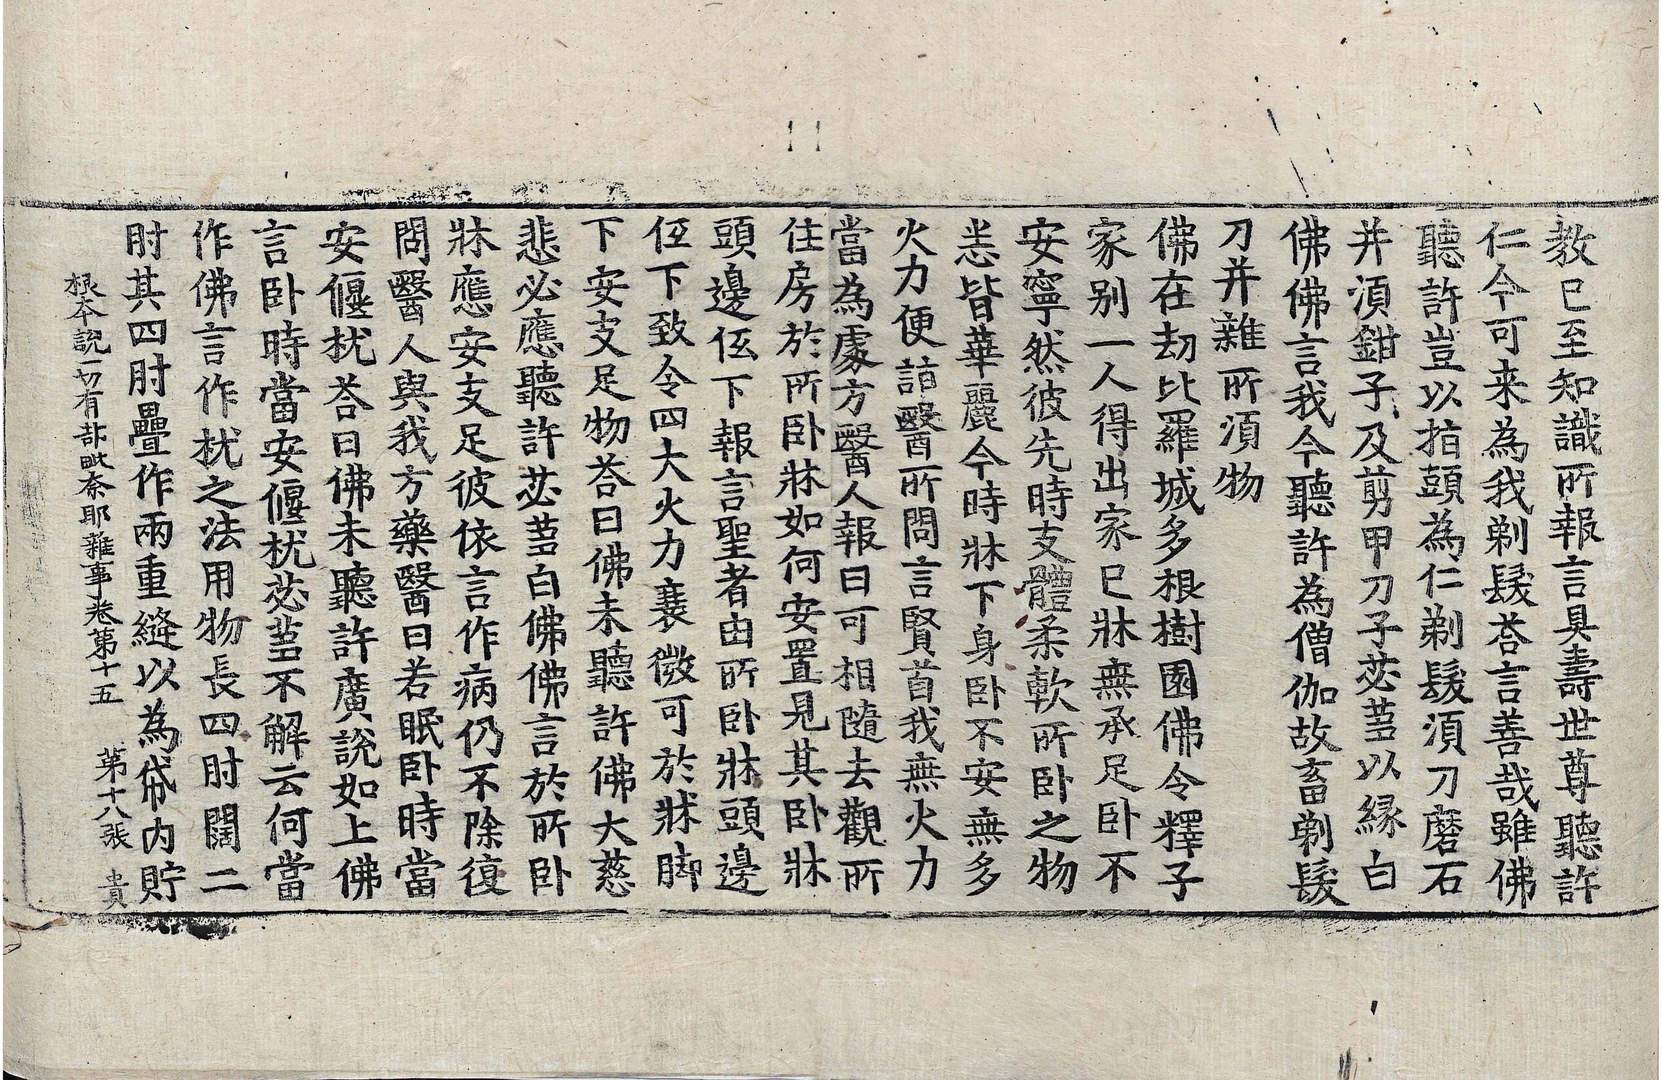 教已至知識所報言具壽世尊聽許
仁今可来為我剃髮荅言善哉雖佛
聽許豈以指頭為仁剃髮湏刀磨石
并湏鉗子及剪甲刀子苾蒭以縁白
佛佛言我今聽許為僧伽故畜剃髮
刀并雜所湏物
佛在劫比羅城多根樹園佛令釋子
家别一人得出家已牀無承足卧不
安寧然彼先時支體柔軟所卧之物
悉皆華麗今時牀下身卧不安無多
火力便詣醫所問言賢首我無火力
當為處方醫人報曰可相隨去觀所
住房於所卧牀如何安置見其卧牀
頭邊低下報言聖者由所卧牀頭邊
低下致令四大火力衰微可於牀脚
下安支足物荅曰佛未聽許佛大慈
悲必應聽許苾蒭白佛佛言於所卧
牀應安支足彼依言作病仍不除復
問醫人與我方藥醫曰若眠卧時當
安偃枕荅曰佛未聽許廣說如上佛
言卧時當安偃枕苾蒭不解云何當
作佛言作枕之法用物長四肘闊二
肘其四肘疊作兩重縫以為帒内貯
根本說一切有部毗奈耶雜事卷第十五 第十八張 貴